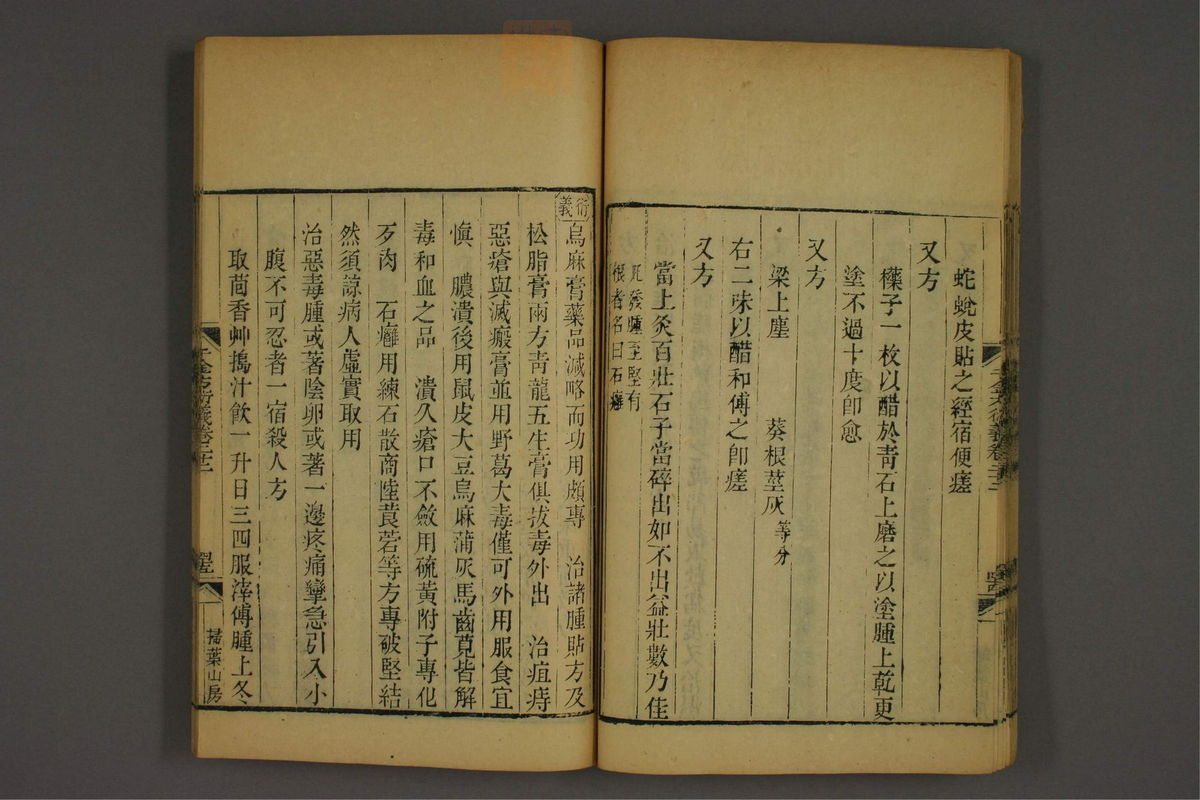 蛇蛻皮貼之經宿便瘥
又方
櫟子一枚以醋於青石上磨之以塗腫上乾更
塗不過十度卽愈
又方
梁上塵　葵根莖灰等分
右二味以醋和傅之卽瘥
又方
當上灸百壯石子當碎出如不出益壯數乃佳
凡發腫至堅有
根者名曰石癰
衍義
烏麻膏藥品減略而功用頗專　治諸腫貼方及
松脂膏兩方青龍五生膏俱拔毒外出　治疽痔
惡瘡與滅瘢膏並用野葛大毒僅可外用服食宜
慎　膿潰後用鼠皮大豆烏麻蒲灰馬齒莧皆解
毒和血之品　潰久瘡口不斂用硫黃附子專化
歹肉　石癰用練石散商陸莨菪等方專破堅結
然須諒病人虛實取用
治惡毒腫或著陰卵或著一邊疼痛攣急引入小
腹不可忍者一宿殺人方
取茴香艸搗汁飲一升日三四服滓傅腫上冬
千金方衍義卷二十二
掃葉山房